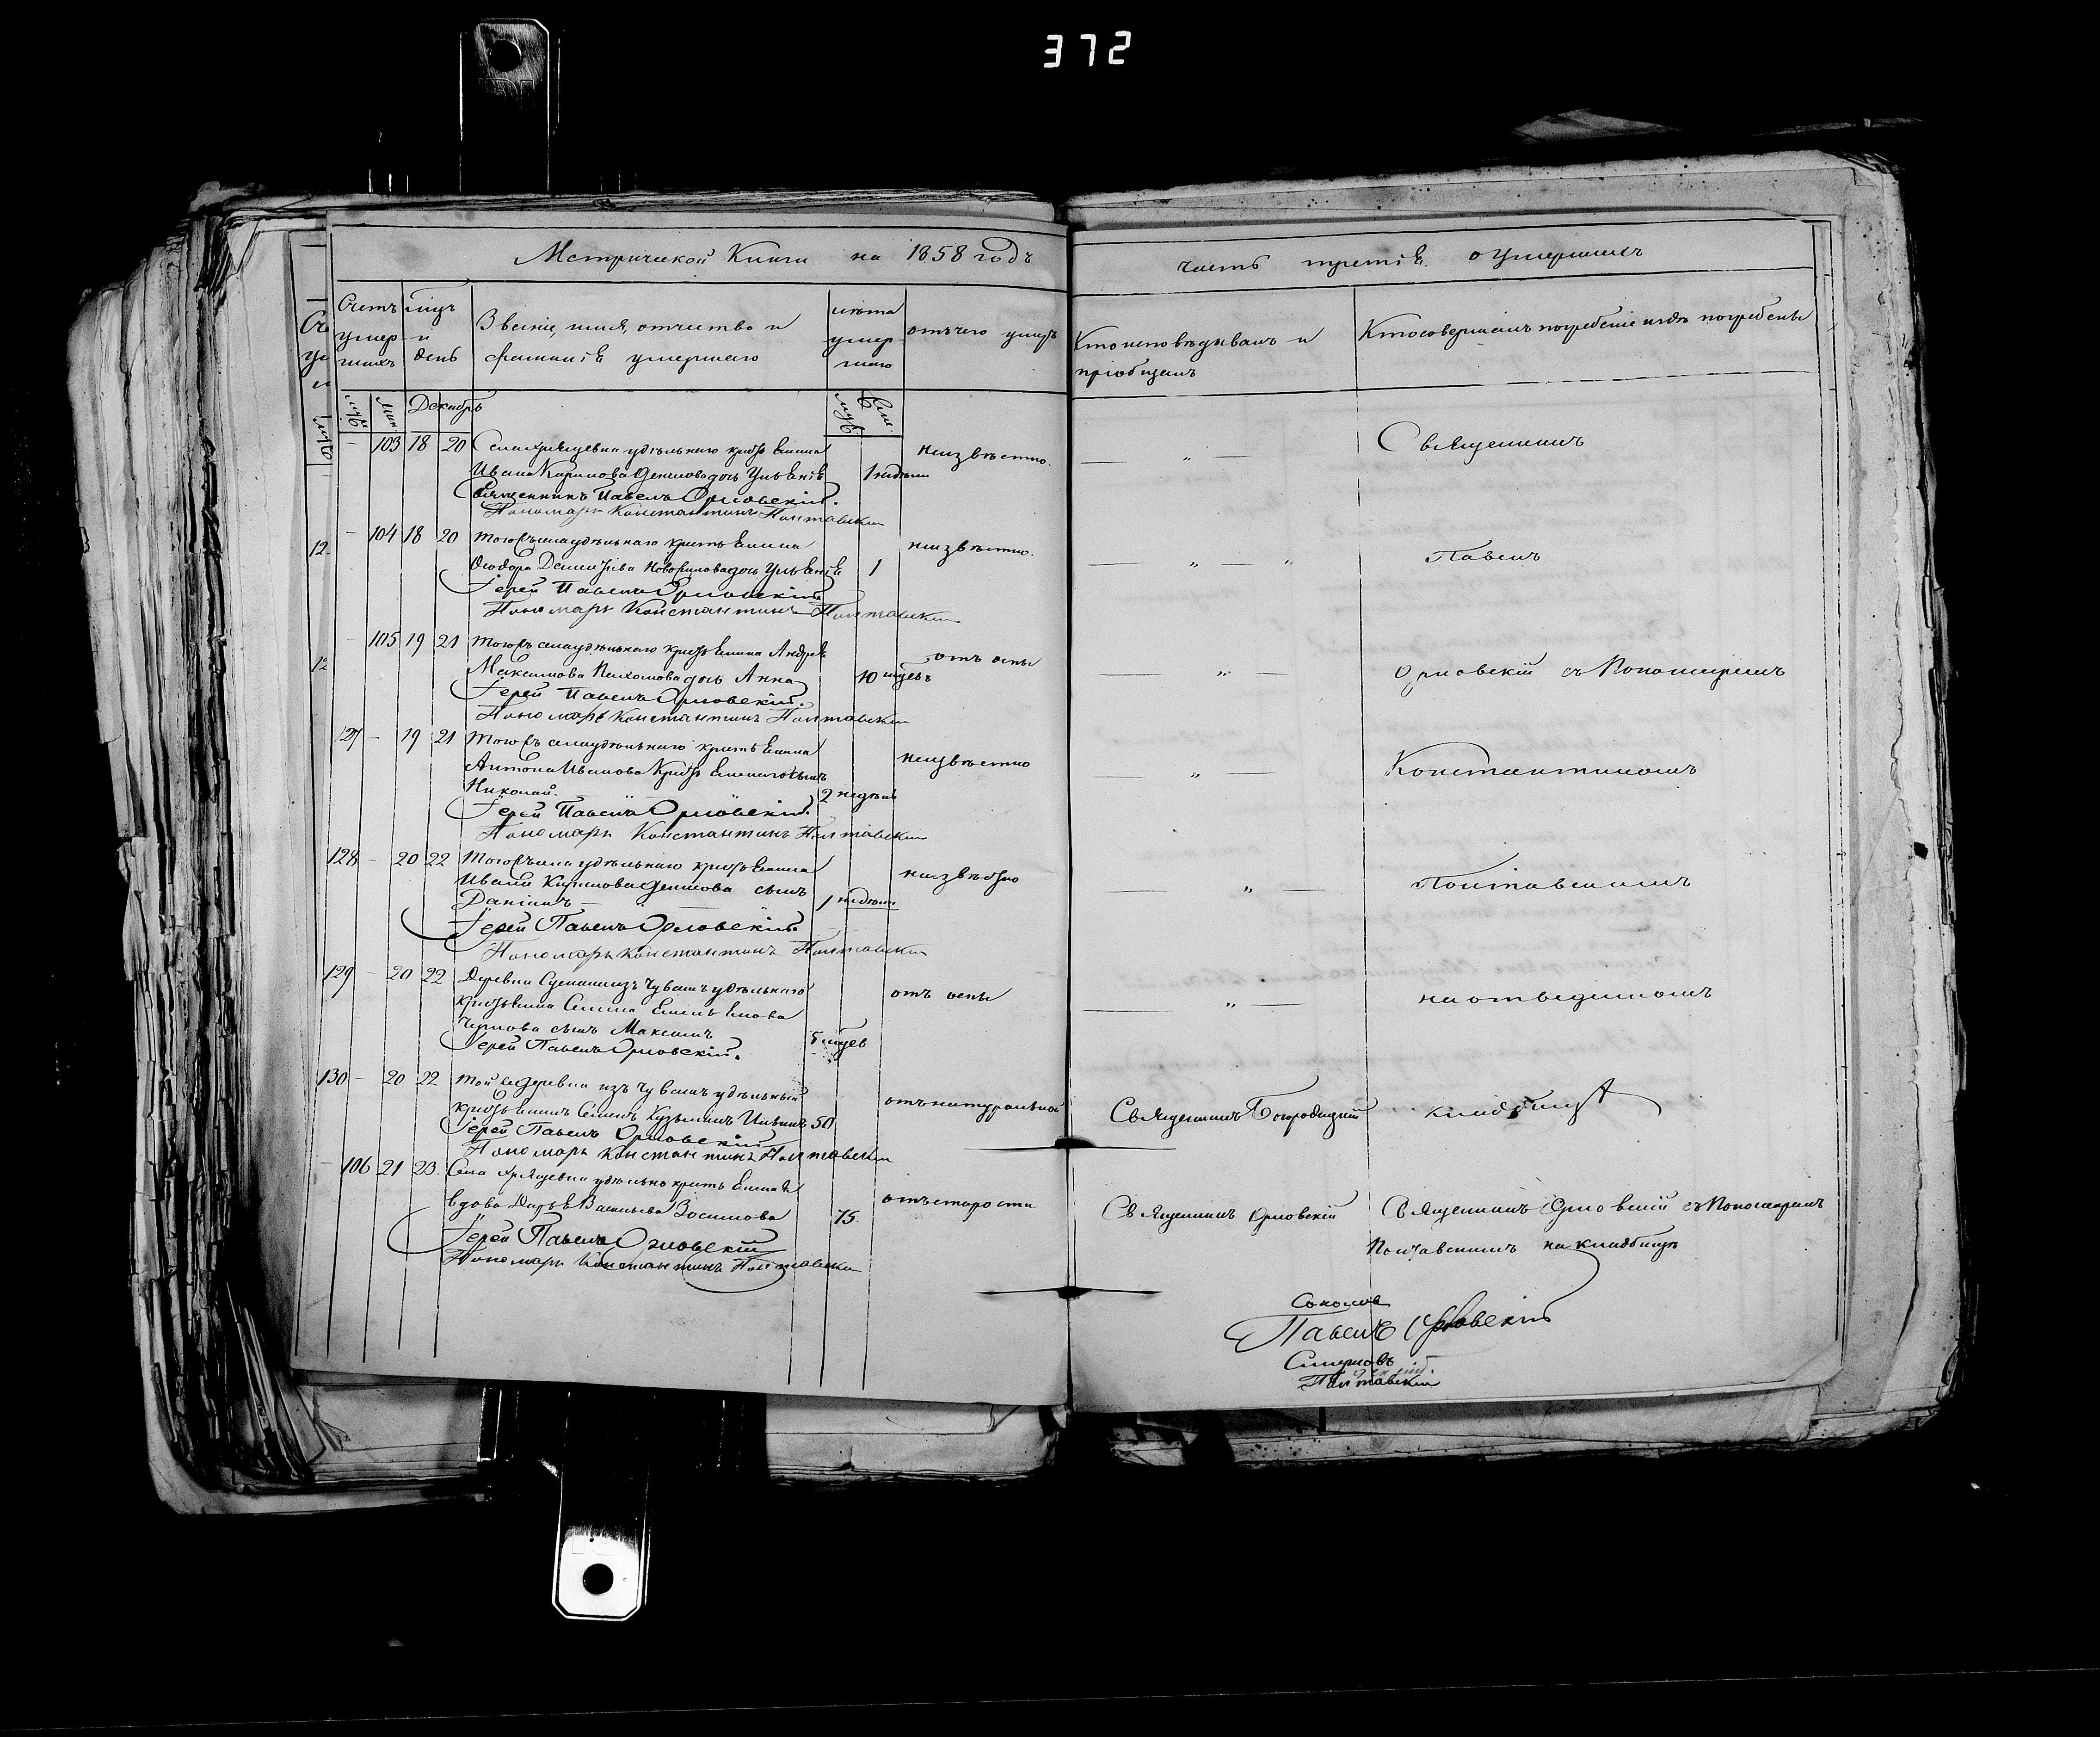 372
Метрической Книги на 1858 годъ
Счетъ умер-шихъ
мцъ и день
Званіе, имя, отчество и
фамилія умершаго
лѣта умер-шаго
отъ чего умеръ
муж. жен.
Декабрь
муж. жен.
103 18 20 Села удѣльнаго крестьянина неизвѣстно.
Ивана Кирилова дочь 1 недѣли
Священникъ Павелъ Орловскій.
Пономарь Константинъ Полтавскій
104 18 20 Того съ села удѣльнаго крестьянина неизвѣстно.
Ѳеодора дочь 1
Іерей Павелъ Орловскій.
Пономарь Константинъ Полтавскій
105 19 21 Того съ села удѣльнаго крестьянина Андрея отъ оспы
Максимова Пахомова дочь Анна 10 мцевъ
Іерей Павелъ Орловскій.
Пономарь Константинъ Полтавскій
127 19 21 Того съ села удѣльнаго крестьянина неизвѣстно
Антона Иванова сынъ
Николай. 2 недѣль
Іерей Павелъ Орловскій.
Пономарь Константинъ Полтавскій
128 20 22 Того съ села удѣльнаго крестьянина неизвѣстно
Ивана Кирилова сынъ
Даніилъ 1 недѣли
Іерей Павелъ Орловскій.
Пономарь Константинъ Полтавскій
129 20 22 Деревни изъ Чувашъ удѣльнаго отъ оспы
крестьянина Семена Емельянова
Чернова сынъ Максимъ 5 мцев
Іерей Павелъ Орловскій.
130 20 22 Той же деревни изъ чувашъ удѣльный отъ натуральной
крестьянинъ Семенъ Кузьминъ 50
Іерей Павелъ Орловскій
Пономарь Константинъ Полтавскій
106 21 23 Села удѣльно крестьянина
вдова Дарья Васильева 75 отъ старости
Іерей Павелъ Орловскій
Пономарь Константинъ Полтавскій
часть третія о умершихъ
Кто исповѣдывалъ и
пріобщалъ
Кто совершалъ погребеніе и гдѣ погребены
Священникъ
Павелъ
Орловскій съ Пономаремъ
Константиномъ
Полтавскимъ
на отведенномъ
Священникъ Богородицкій
кладбищѣ
Священникъ Орловскій
Священникъ Орловскій съ Пономаремъ
Полтавскимъ на кладбищѣ
Соколов
Павелъ Орловскій
Смирновъ
Полтавскій